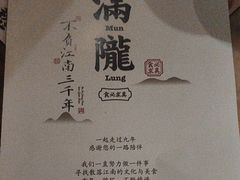 滿
Mun
隴
Lung
不负江南三千年
食必求真
食必求真
一起走过九年
感谢您的一路陪伴
我们一直努力做一件事
寻找散落江南的文化与美食